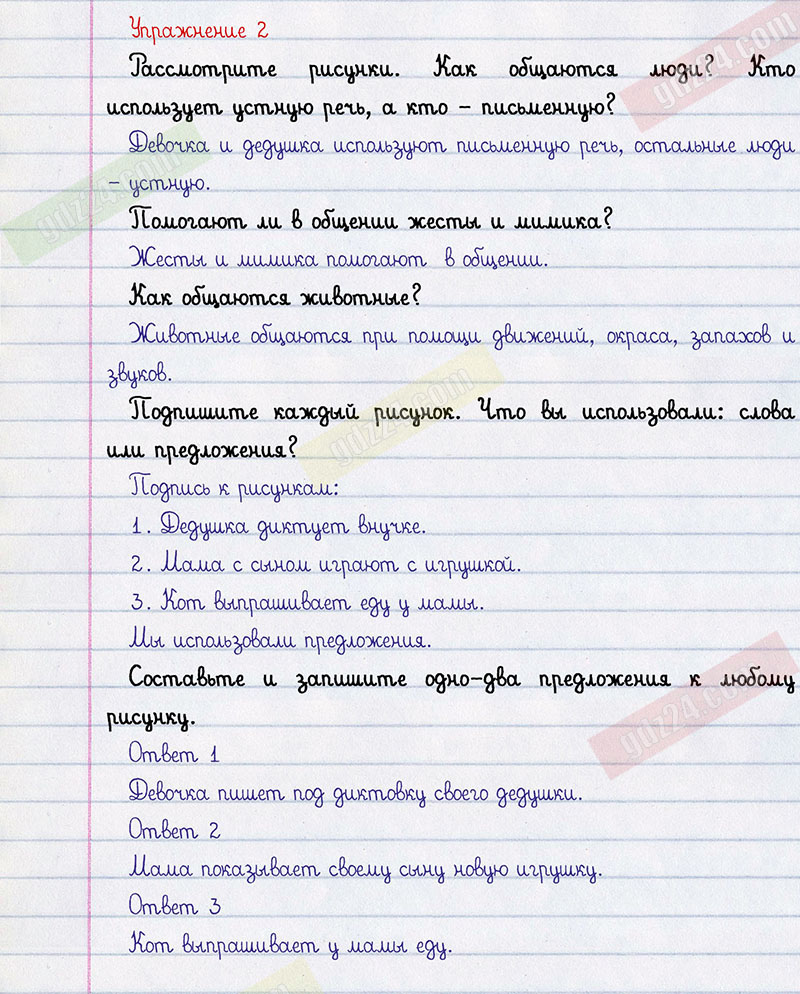 Упражнение 2
Рассмотрите рисунки. Как общаются люди? Кто
использует устную речь, а кто – письменную?
Девочка и дедушка используют письменную речь, остальные люди
– устную.
Помогают ли в общении жесты и мимика?
Жесты и мимика помогают в общении.
Как общаются животные?
Животные общаются при помощи движений, окраса, запахов и
звуков.
Подпишите каждый рисунок. Что вы использовали: слова
или предложения?
Подпись к рисункам:
1. Дедушка диктует внучке.
2. Мама с сыном играют с игрушкой.
3. Кот выпрашивает еду у мамы.
Мы использовали предложения.
Составьте и запишите одно-два предложения к любому
рисунку.
Ответ 1
Девочка пишет под диктовку своего дедушки.
Ответ 2
Мама показывает своему сыну новую игрушку.
Ответ 3
Кот выпрашивает у мамы еду.
gdz24.com
gdz24.com
gdz24.com
gdz24.com